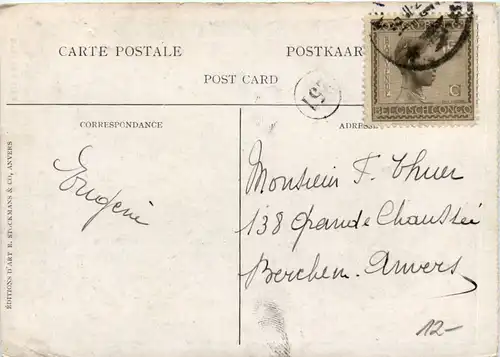 CARTE POSTALE
POSTKAAR
POST CARD
BELGISCH-CONGO
C
CORRESPONDANCE
ADRESSE
Eugénie
Monsieur F. Thuer
138 Grande Chaussée
Berchem. Anvers
12-
ÉDITIONS D'ART R. STOCKMANS & Cº, ANVERS